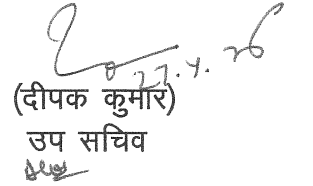 27.4.26
(दीपक कुमार)
उप सचिव